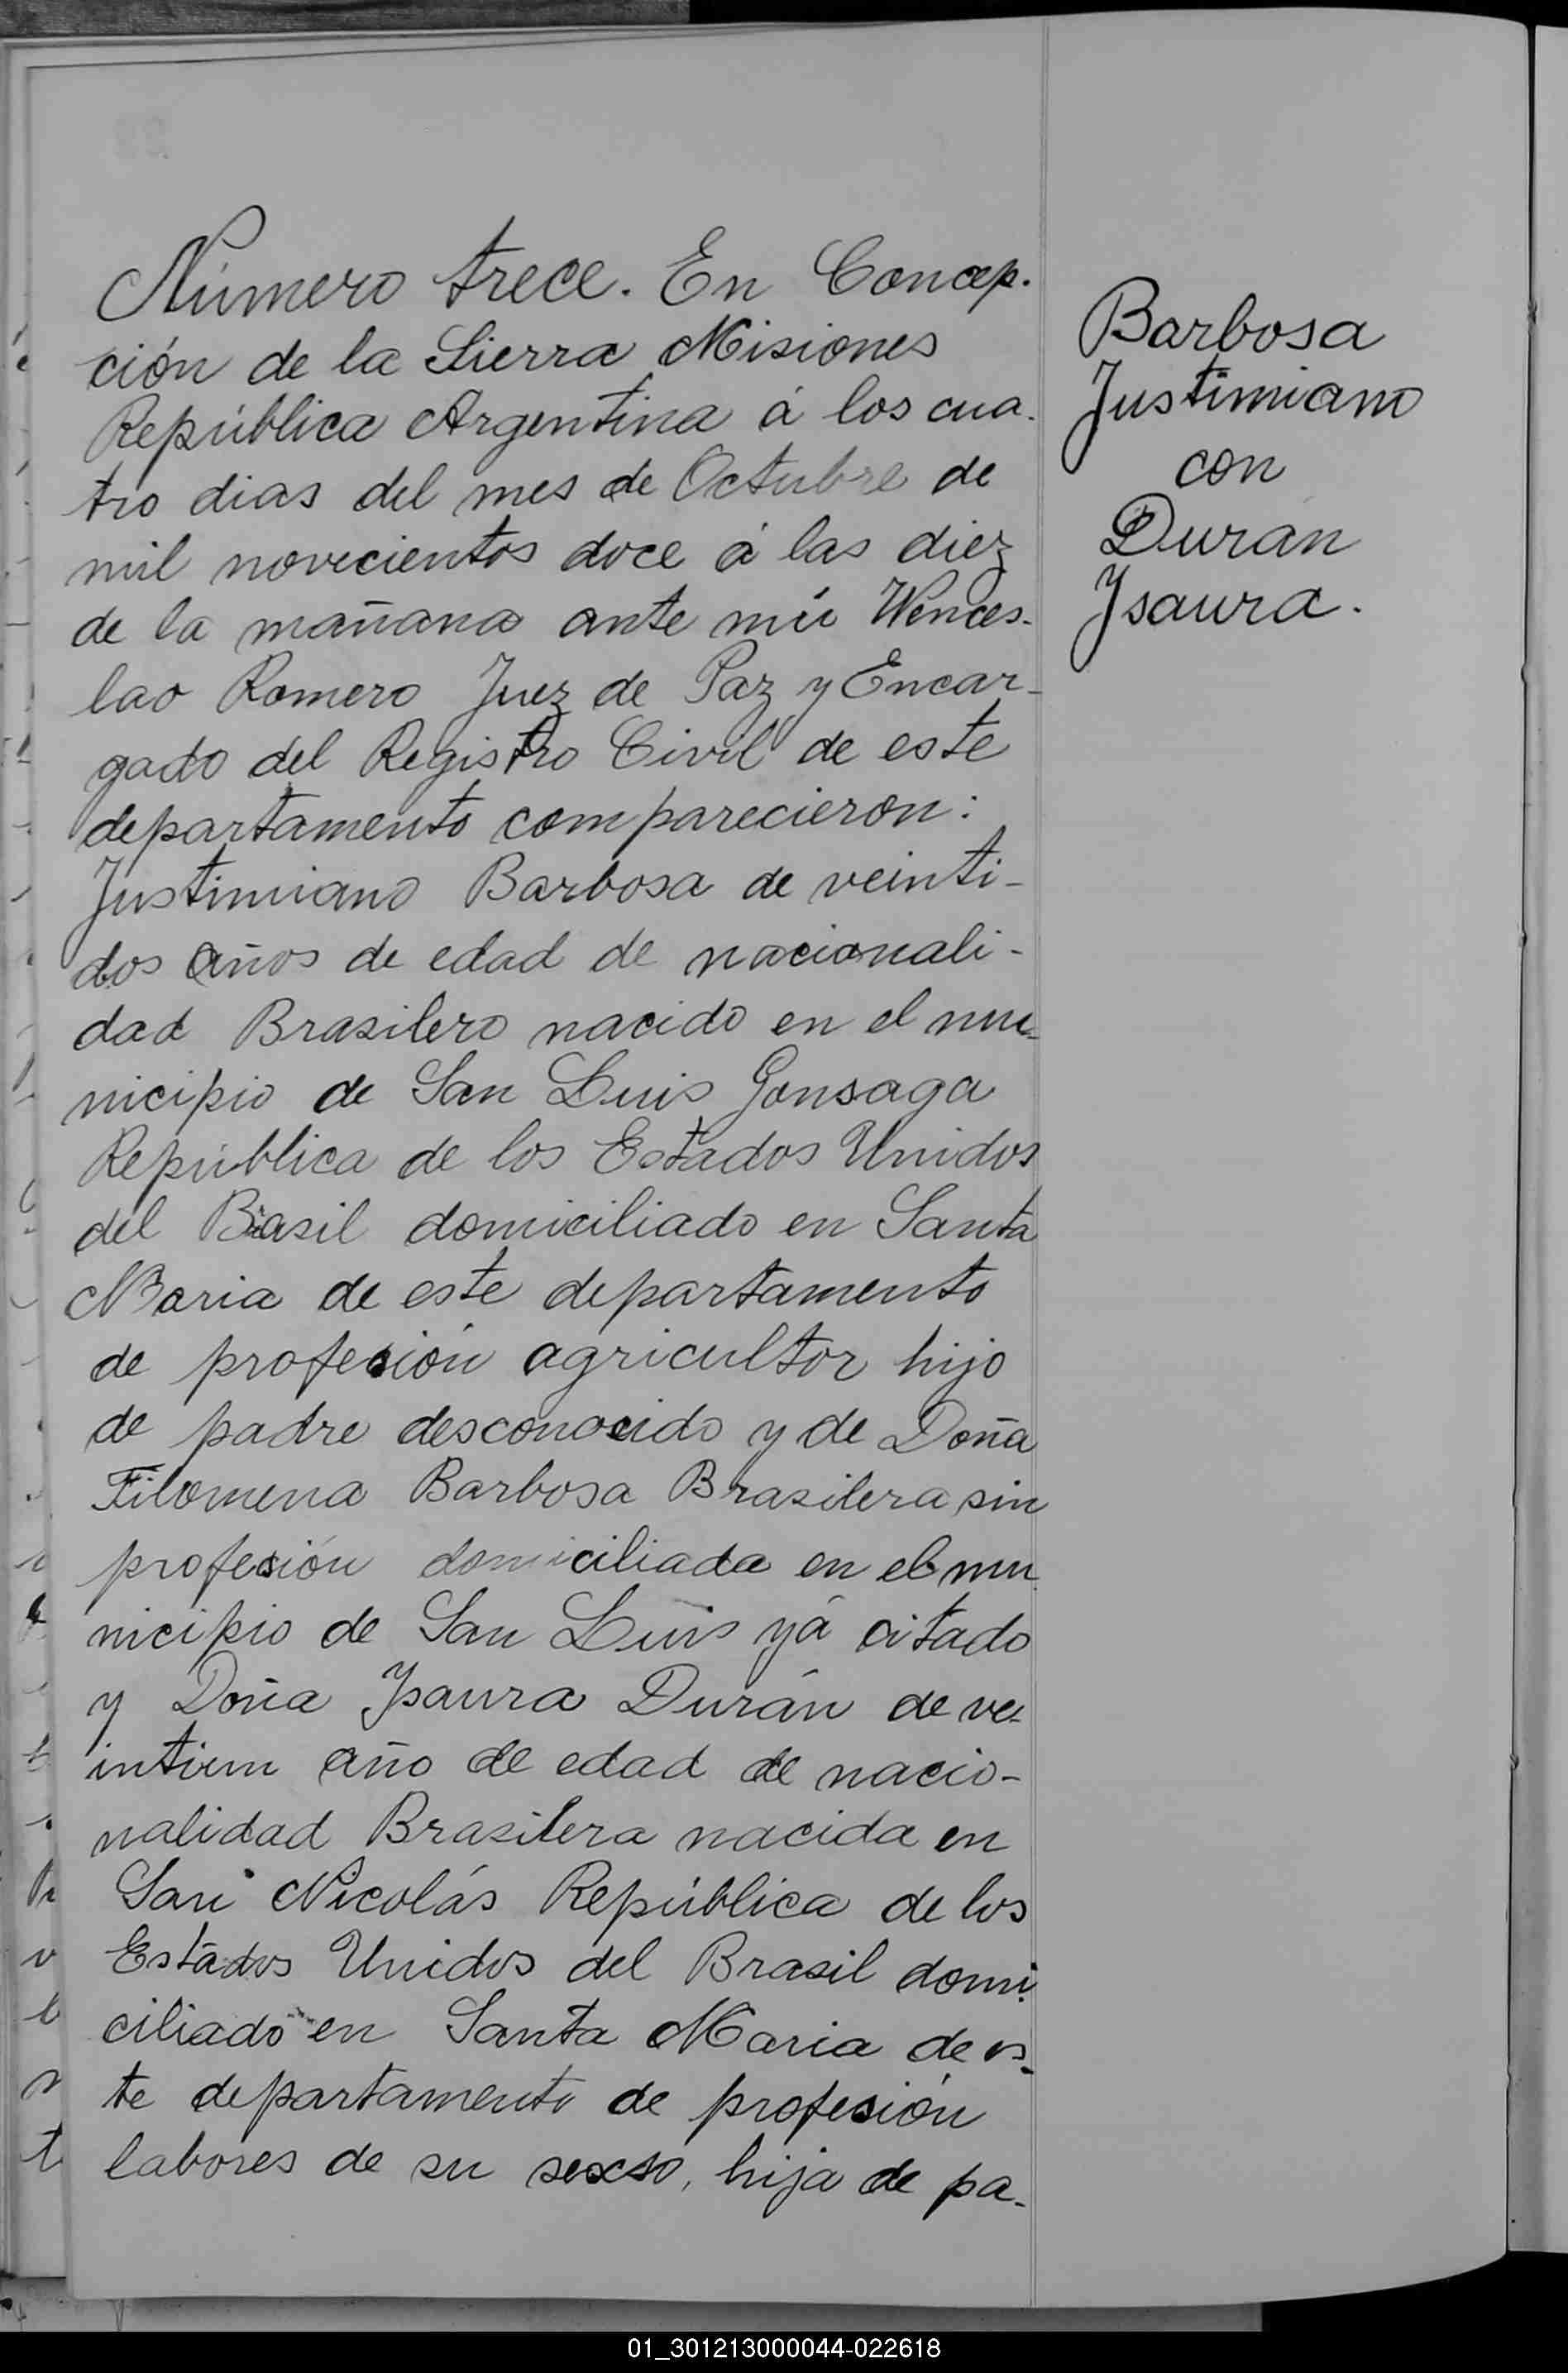 Número trece. En Concep-
ción de la Sierra Misiones
República Argentina á los cua-
tro dias del mes de Octubre de
mil novecientos doce á las diez
de la mañana ante mí Wences-
lao Romero Juez de Paz y Encar-
gado del Registro Civil de este
departamento comparecieron:
Justimiano Barbosa de veinti-
dos años de edad de nacionali-
dad Brasilero nacido en el mu-
nicipio de San Luis Gonsaga
República de los Estados Unidos
del Brasil domiciliado en Santa
Maria de este departamento
de profesión agricultor hijo
de padre desconocido y de Doña
Filomena Barbosa Brasilera sin
profesión domiciliada en el mu
nicipio de San Luis yá citado
y Doña Ysaura Durán de ve-
intiun año de edad de nacio-
nalidad Brasilera nacida en
San Nicolás República de los
Estados Unidos del Brasil domi-
ciliado en Santa Maria de es-
te departamento de profesión
labores de su sexso, hija de pa-
Barbosa
Justimiano
con
Durán
Ysaura.
01_301213000044-022618